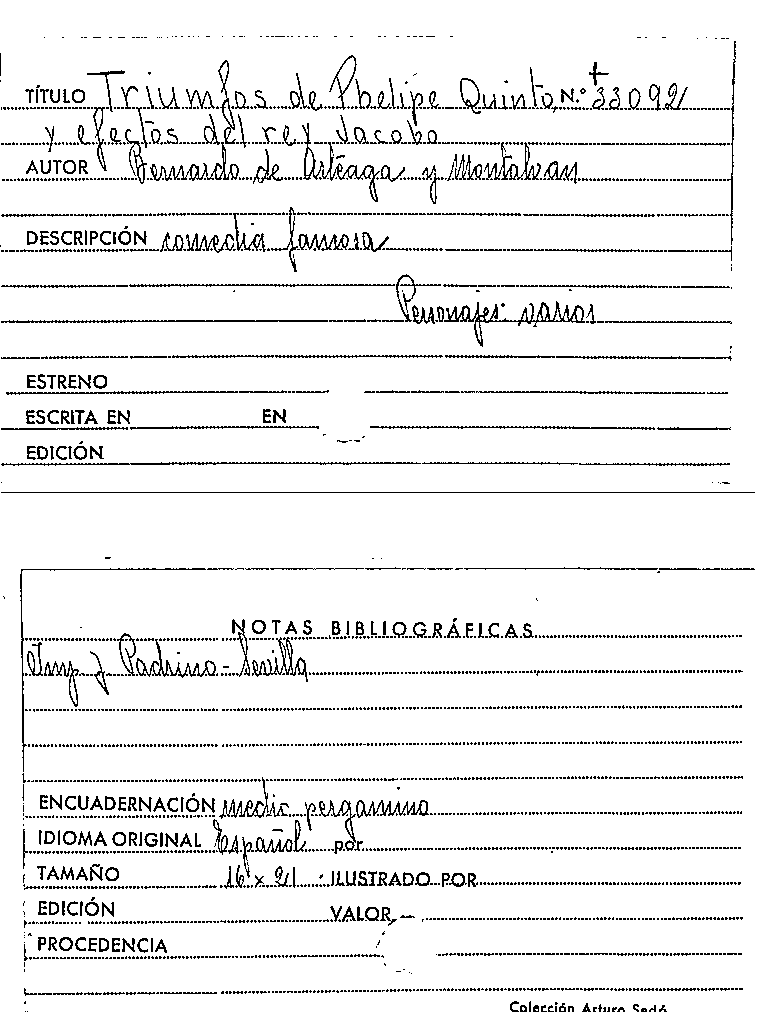 TÍTULO Triumfos de Phelipe Quinto N.º 33092
y efectos del rey Jacobo
AUTOR Bernardo de Arteaga y Montalvan
DESCRIPCIÓN comedia famosa
Personajes: varios
ESTRENO
ESCRITA EN EN
EDICIÓN
NOTAS BIBLIOGRÁFICAS
Imp. J. Padrino - Sevilla
ENCUADERNACIÓN medio pergamino
IDIOMA ORIGINAL Español por
TAMAÑO 16 x 21 ILUSTRADO POR
EDICIÓN VALOR —
PROCEDENCIA
Colección Arturo Sedó